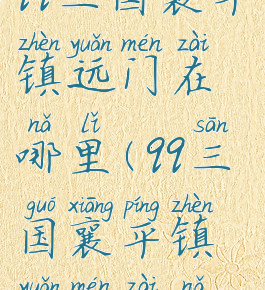 99三国襄平
zhèn yuǎn mén zài
镇远门在
nǎ lǐ sān
哪里(99三
guó xiāng píng zhèn
国襄平镇
yuǎn mén zài nǎ